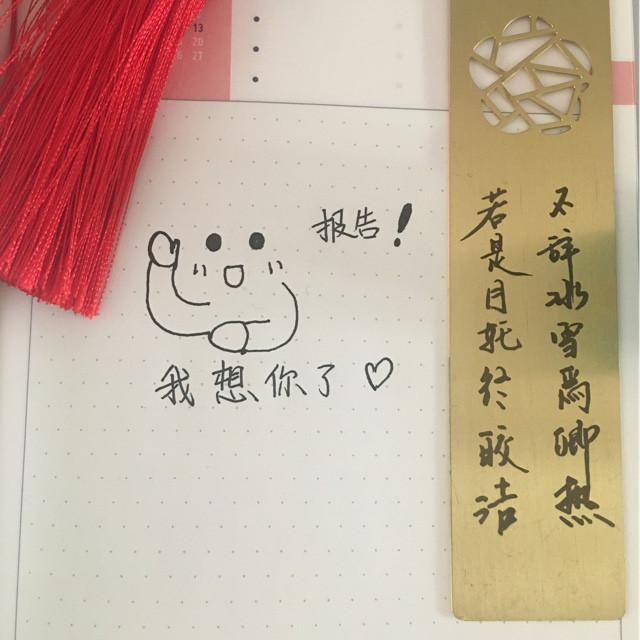 13
20
27
报告!
我想你了♡
不辞冰雪為卿热
若是月轮终皎洁